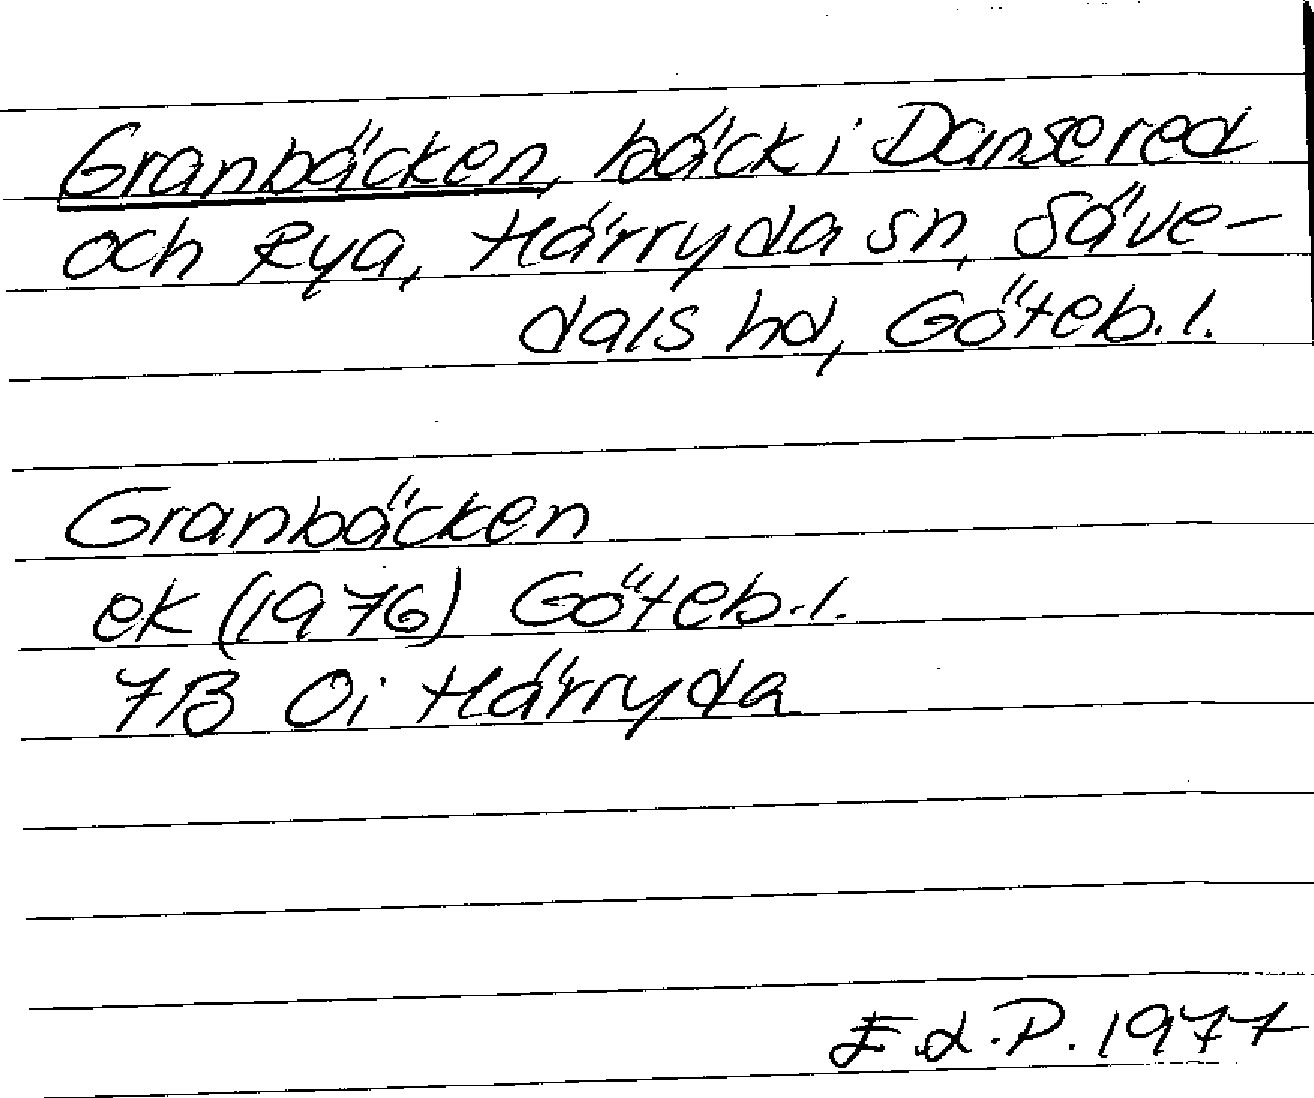 Granbäcken, bäck i Dansered
och Rya, Härryda sn, Säve-
dals hd, Göteb. l.
Granbäcken
ek (1976) Göteb. l.
7B 0i Härryda
E.d.P. 1977